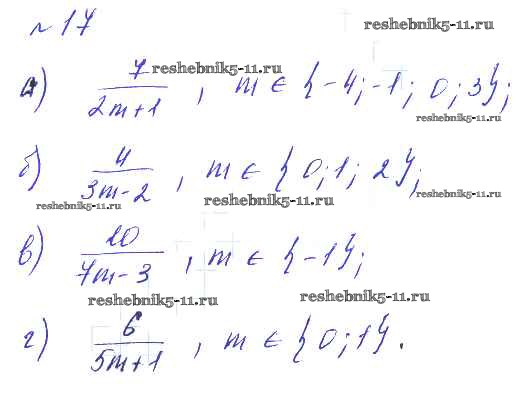 №17
reshebnik5-11.ru
а) 7/(2m+1), m ∈ {-4; -1; 0; 3};
reshebnik5-11.ru
reshebnik5-11.ru
б) 4/(3m-2), m ∈ {0; 1; 2};
reshebnik5-11.ru
reshebnik5-11.ru
reshebnik5-11.ru
в) 10/(7m-3), m ∈ {-1};
reshebnik5-11.ru
reshebnik5-11.ru
г) 6/(5m+1), m ∈ {0; 1}.